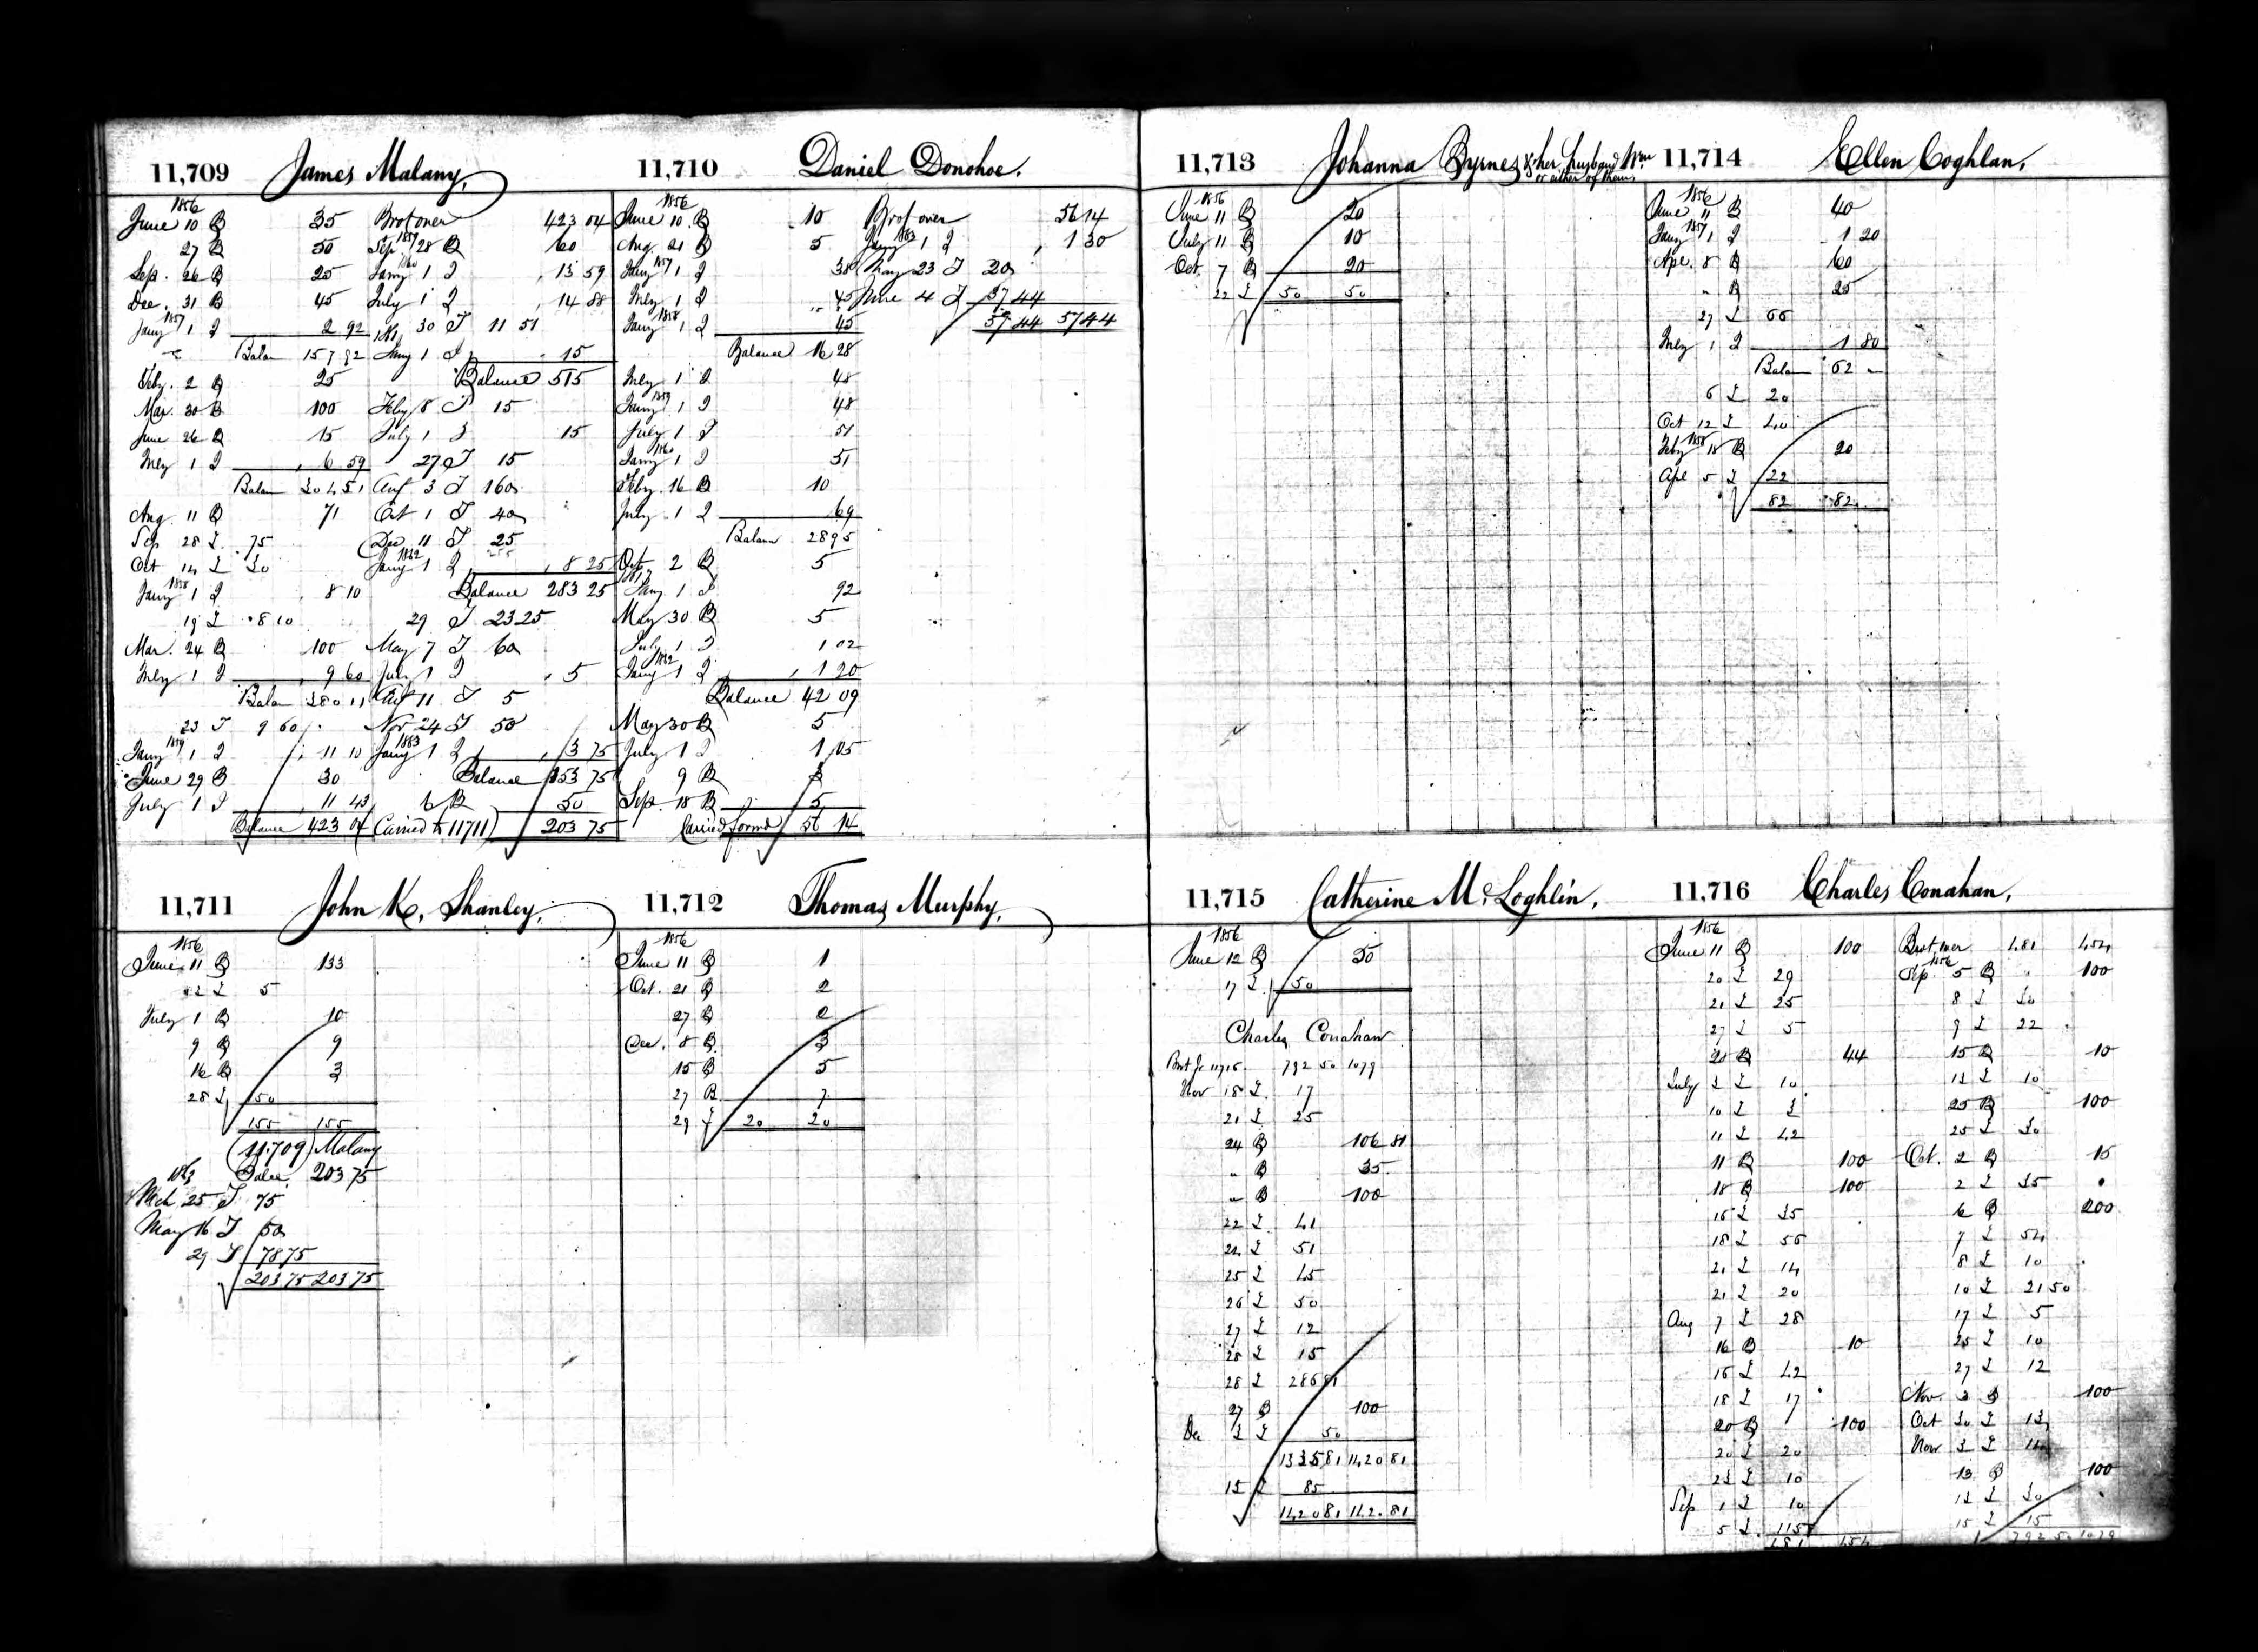 11,709 James Malany,
1856
June 10 B 35
27 B 50
Sep. 26 B 25
Dec. 31 B 45
1857
Jany 1 I 2 92
Balan 157 92
Feby. 2 B 25
Mar. 30 B 100
June 26 B 15
July 1 I 6 59
Balan 304 51
Aug. 11 B 71
Sep 28 L 75
Oct 14 L 30
1858
Jany 1 I 8 10
19 L 8 10
Mar. 24 B 100
July 1 I 9 60
Balan 380 11
23 T 9 60
1859
Jany 1 I 11 10
June 29 B 30
July 1 I 11 43
Balance 423 04
Brot over 423 04
1859
Sep 28 B 60
1860
Jany 1 I 13 59
July 1 I 14 88
30 T 11 51
1861
Jany 1 I 15
Balance 515
Feby 8 T 15
July 1 I 15
27 T 15
Aug 3 T 160
Oct 1 T 40
Dec 11 T 25
1862
Jany 1 I 8 25
Balance 283 25
29 T 23 25
May 7 T 60
July 1 I 5
11 T 5
Nov 24 T 50
1863
Jany 1 I 3 75
Balance 153 75
6 B 50
(Carried to 11711) 203 75
11,710 Daniel Donohoe.
1856
June 10 B 10
Aug. 21 B 5
1857
Jany 1 I 38
July 1 I 45
1858
Jany 1 I 45
Balance 16 28
July 1 I 48
1859
Jany 1 I 48
July 1 I 51
1860
Jany 1 I 51
Feby. 16 B 10
July 1 I 69
Balan 28 95
Oct 2 B 5
1861
Jany 1 I 92
May 30 B 5
July 1 I 1 02
1862
Jany 1 I 1 20
Balance 42 09
May 30 B 5
July 1 I 1 05
9 B 3
Sep. 18 B 5
Carried forwd 56 14
Brot over 56 14
1863
Jany 1 I 1 30
May 23 T 20
June 4 T 37 44
57 44 57 44
11,711 John K. Shanley,
1856
June 11 B 133
L 5
July 1 B 10
9 B 9
16 B 3
28 L 150
155 155
(11.709) Malany
1863 Balce 203 75
Mch 25 T 75
May 16 T 50
29 T 78 75
203 75 203 75
11,712 Thomas Murphy,
1856
June 11 B 1
Oct. 21 B 2
27 B 2
Dec. 8 B 3
15 B 5
27 B 7
29 L 20 20
11,713 Johanna Byrnes & her husband Wm
or either of them.
1856
June 11 B 20
July 11 B 10
Oct. 7 B 20
22 L 50 50
11,714 Ellen Coghlan,
1856
June 11 B 40
1857
Jany 1 I 1 20
Ape. 8 B 60
" B 25
27 L 66
July 1 I 1 80
Balan 62 "
6 L 20
Oct 12 L 40
1858
Feby 18 B 20
Apl 5 L 22
82 82
11,715 Catherine McLoghlin,
1856
June 12 B 50
17 L 50
Charles Conahan
Brot fr 11716 792 50 1079
Nov 18 L 17
21 L 25
24 B 106 81
" B 35
" B 100
22 L 41
24 L 51
25 L 45
26 L 50
27 L 12
28 L 15
28 L 286 81
27 B 100
Dec 3 L 50
1335 81 1420 81
15 L 85
1420 81 1420 81
11,716 Charles Conahan,
1856
June 11 B 100
20 L 29
21 L 25
27 L 5
B 44
July 3 L 10
10 L 3
11 L 42
11 B 100
18 B 100
15 L 35
18 L 56
21 L 14
21 L 20
Aug 7 L 28
16 B 10
16 L 42
18 L 17
20 B 100
20 L 20
23 L 10
Sep 1 L 10
5 L
481 454
Brot over 481 454
1856
Sep. 5 B 100
8 L 30
9 L 22
15 B 10
13 L 10
25 B 100
25 L 30
Oct. 2 B 15
2 L 35
6 B 200
7 L 54
8 L 10
10 L 21 50
17 L 5
25 L 10
27 L 12
Nov. 3 B 100
Oct 30 L 13
Nov 3 L 14
13 B 100
13 L 30
15 L 15
792 50 1079